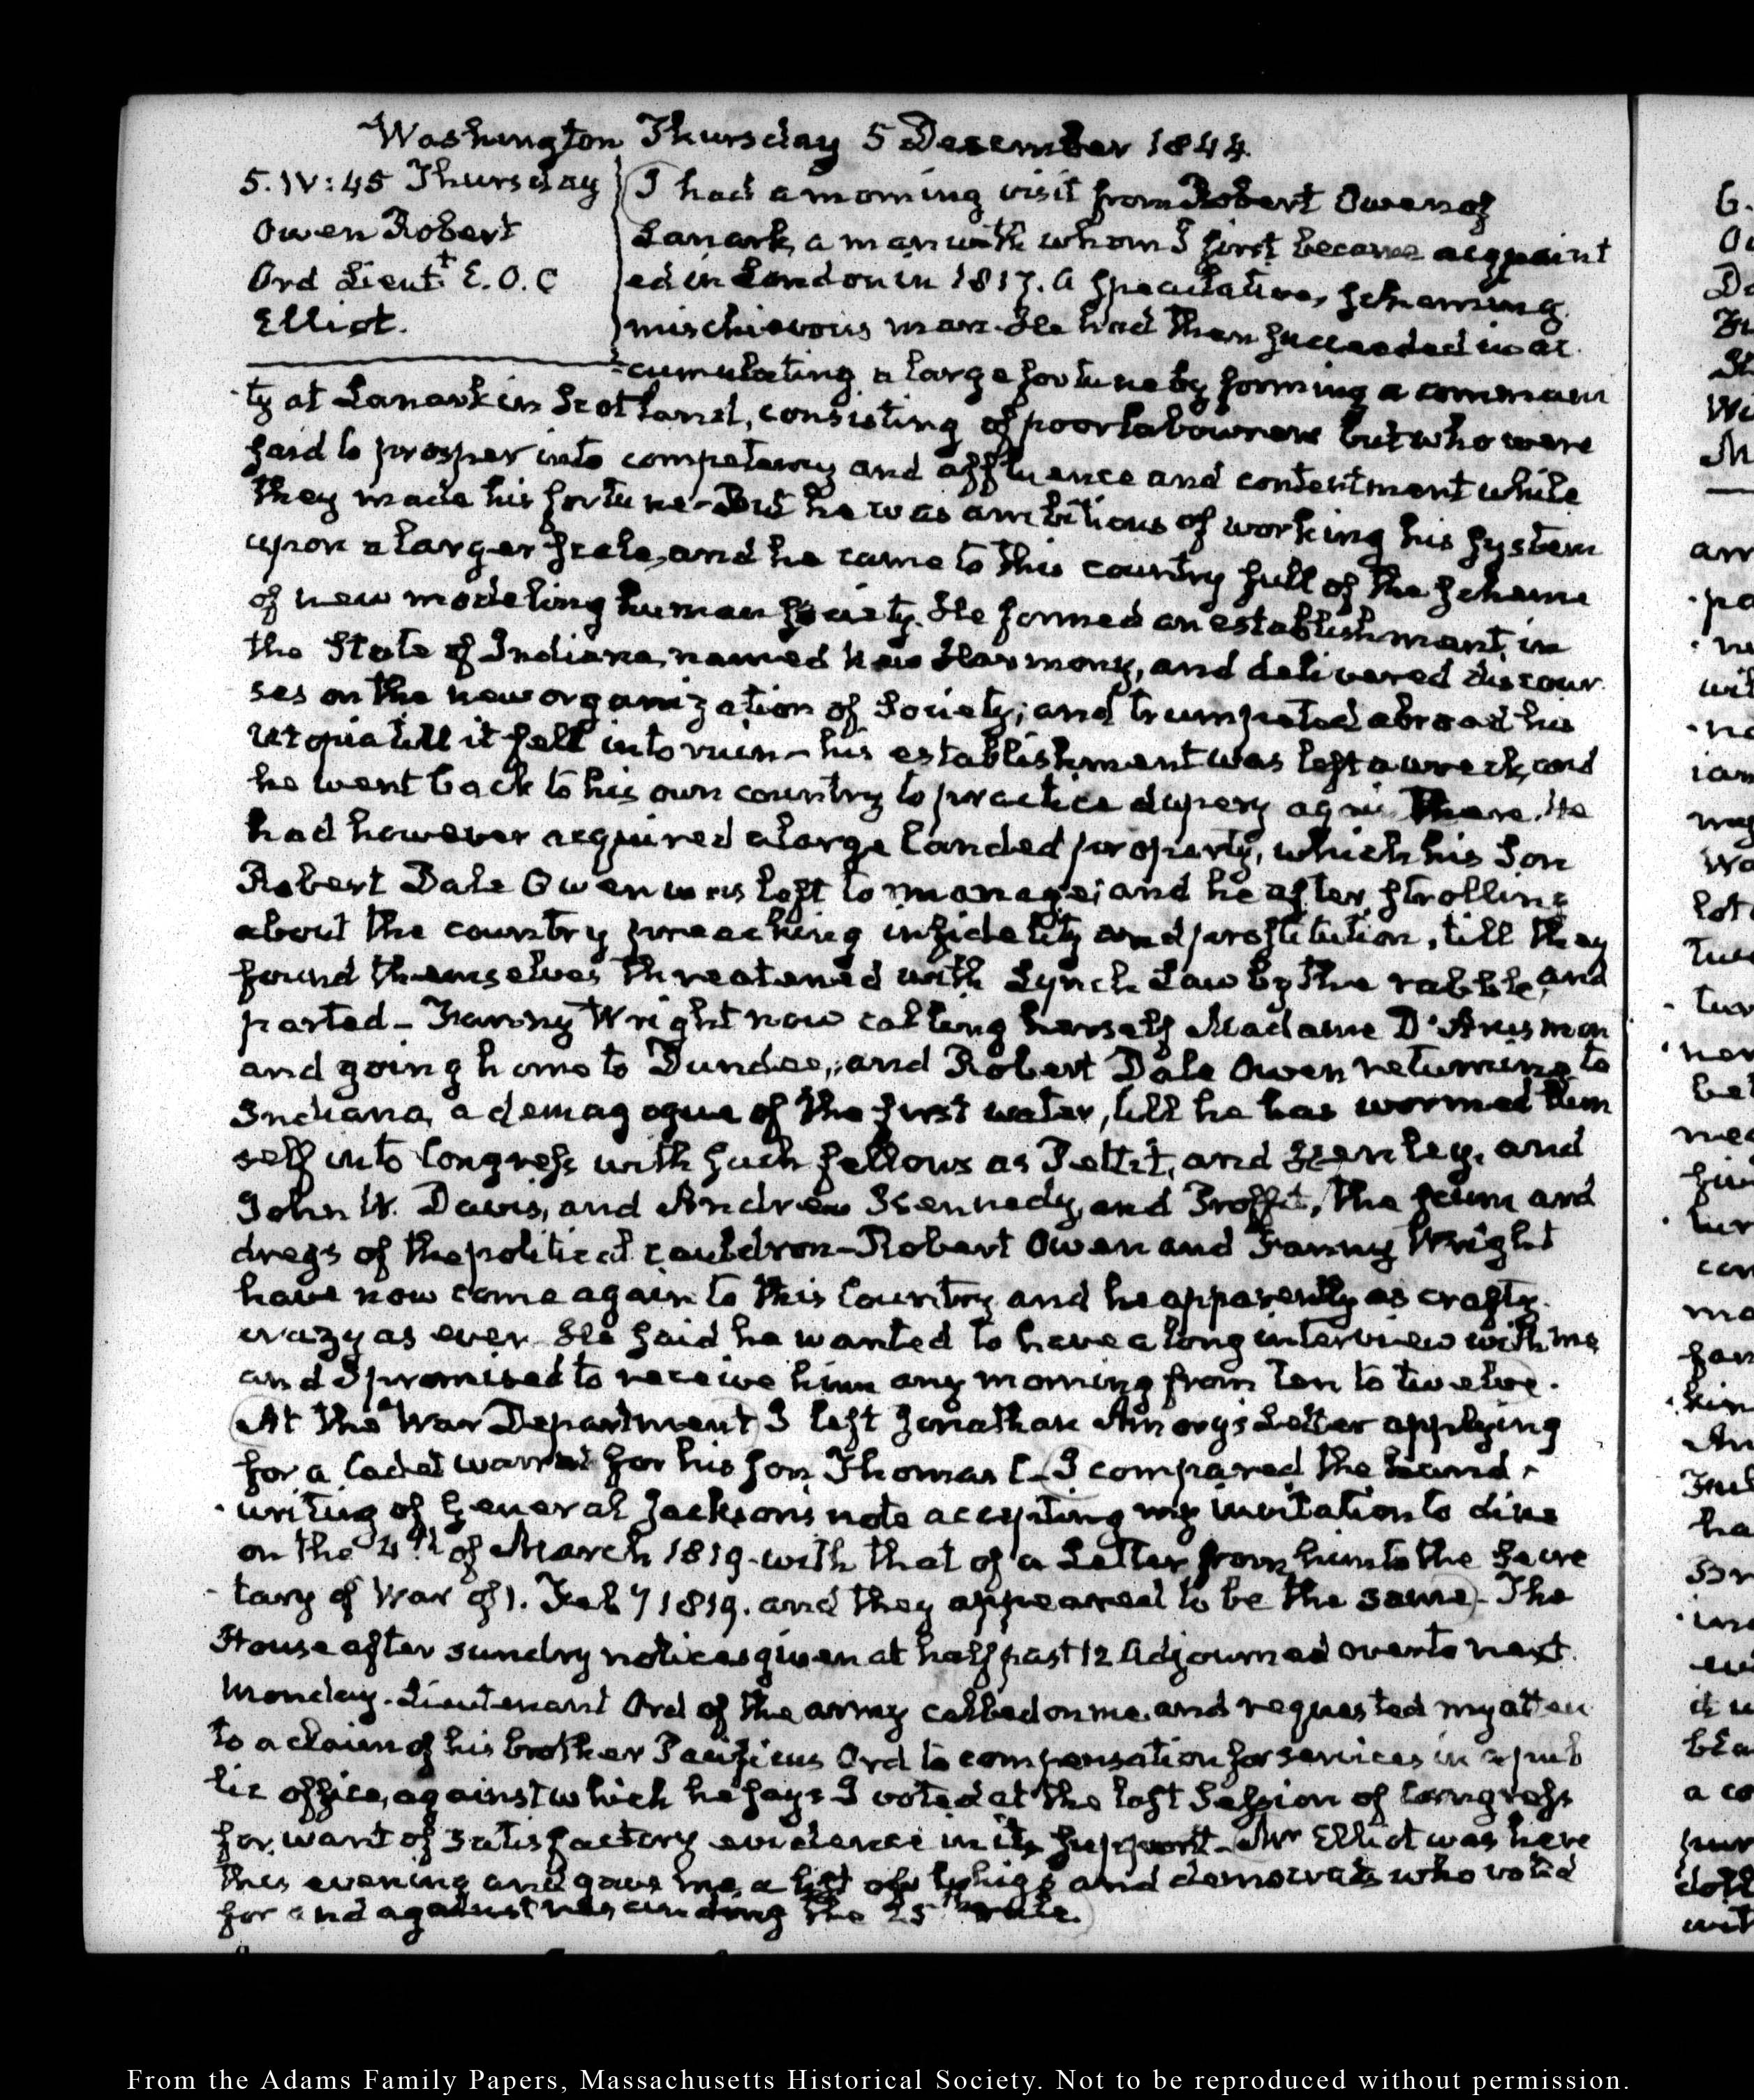 Washington Thursday 5 December 1844.
5. IV:45 Thursday
Owen Robert
Ord Lieutt E. O. C
Elliot.
I had a morning visit from Robert Owen of
Lanark, a man with whom I first became acquaint
ed in London in 1817. a speculative, scheming
mischievous man. He had then succeeded in ac
cumulating a large fortune by forming a communi
ty at Lanark in Scotland, consisting of poor labourers but who were
said to prosper into competency and affluence and contentment while
they made his fortune - But he was ambitious of working his system
upon a larger scale, and he came to this country full of the scheme
of new modeling human society. He formed an establishment, in
the State of Indiana, named New Harmony, and delivered discour
ses on the new organization of Society; and trumpeted abroad his
Utopia till it fell into ruin - his establishment was left a wreck, and
he went back to his own country to practice dupery again there. He
had however acquired a large landed property, which his Son
Robert Dale Owen was left to manage; and he after strolling
about the country preaching infidelity and prostitution, till they
found themselves threatened with Lynch Law by the rabble, and
parted - Fanny Wright now calling herself Madame D'Arusmon
and going home to Dundee, and Robert Dale Owen returning to
Indiana, a demagogue of the first water, till he has wormed him
self into Congress with such fellows as Pettit, and Henley, and
John W. Davis, and Andrew Kennedy, and Proffit, the scum and
dregs of the political cauldron - Robert Owen and Fanny Wright
have now come again to this Country, and he apparently as crafty
crazy as ever He said he wanted to have a long interview with me
and I promised to receive him any morning from ten to twelve.
At the War Department I left Jonathan Amory's Letter applying
for a Cadet warrant for his son Thomas C - I compared the hand
writing of General Jackson's note accepting my invitation to dine
on the 4th of March 1819. with that of a Letter from him to the Secre
tary of War of 1. Feby 1819. and they appeared to be the same - The
House after sundry notices given at half past 12 Adjourned over to next
Monday. Lieutenant Ord of the army called on me and requested my atten
to a claim of his brother Pacificus Ord to compensation for services in a pub
lic office, against which he says I voted at the last Session of Congress
for want of satisfactory evidence in its support - Mr Elliot was here
this evening and gave me a list of whigs and democrats who voted
for and against rescinding the 25th rule.
From the Adams Family Papers, Massachusetts Historical Society. Not to be reproduced without permission.